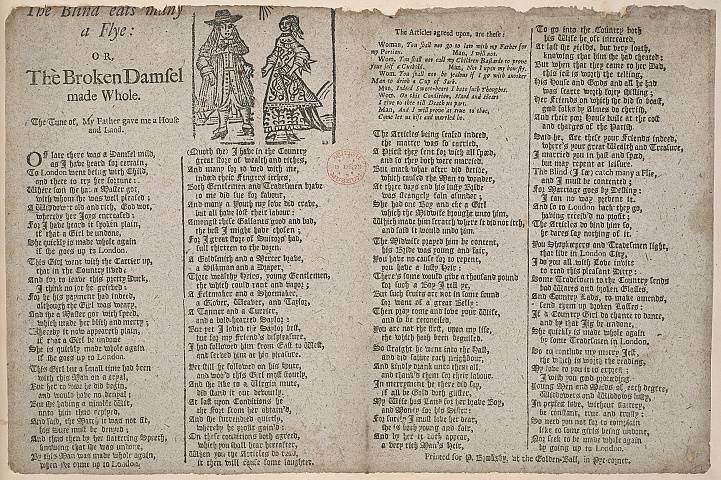 The Blind eats many
a Flye:
OR,
The Broken Damsel
made Whole.
The Tune of, My Father gave me a House
and Land.
OF late there was a Damsel mild,
as I have heard for certain,
To London went being with Child,
and there to try her fortune:
Where soon she had a Master got,
with whom she was well pleased;
A Widower old and rich, God wot,
whereby her Joys encreased:
For I have heard it spoken plain,
if that a Girl be undone,
She quickly is made whole again
if she goes up to London.
This Girl went with the Carrier up,
that in the Country lived;
And for to leave this pretty Duck,
I think no jot he grieved:
For he his payment had indeed,
although the Girl was weary,
And she a Master got with speed,
which made her blith and merry;
Whereby it now appeareth plain,
if that a Girl be undone
She is quickly made whole again
if she goes up to London.
This Girl but a small time had been
with this Man on a tryal,
But her to woo he did begin,
and would have no denyal:
But she having a nimble Wit,
unto him thus replyed,
And said, the March is was not fit,
his Suit must be denied;
And thus then by her flattering Speech,
knowing that she was undone,
By this Man was made whole again,
when she came up to London.
Quoth she, I have in the Country
great store of wealth and riches,
And many for to wed with me,
indeed their Fingers itches,
Both Gentlemen and Tradesmen have
to me did sue for favour,
And many a Youth my love did crave,
but all have lost their labour:
Amongst these Gallants good and bad,
the best I might have chosen;
For I great store of Suitors had,
full thirteen to the dozen.
A Goldsmith and a Mercer brave,
a Silkman and a Draper,
Three wealthy Heirs, young Gentlemen,
the which could rant and vapor;
A Feltmaker and a Shoemaker,
a Glover, Weaver, and Taylor,
A Tanner and a Currier,
and a bold-hearted Saylor:
But yet I loved the Saylor best,
but for my friend's displeasure,
I had followed him from East to West,
and served him at his pleasure.
Yet still he followed on his suit,
and woo'd this Girl most stoutly,
And she like to a Virgin mute,
did stand it out devoutly.
At last upon Conditions he
the Fort from her obtain'd,
And she surrendred quickly,
whereby he profit gain'd:
On these conditions both agreed,
which you shall hear hereafter,
When you the Articles do read,
it then will cause some laughter.
The Articles agreed upon, are these:
Woman, You shall not go to law with my Father for
my Portion. Man, I will not.
Wom. You shall not call my Children Bastards to prove
your self a Cuckold. Man, Not I upon my honesty.
Wom. You shall not be jealous if I go with another
Man to drink a Cup of Sack.
Man, Indeed Sweet-heart I hate such Thoughts.
Wom. On this Condition, Hand and Heart
I give to thee till Death us part.
Man, And I will prove as true to thee,
Come let us kiss and married be.
The Articles being sealed indeed,
the matter was so carried,
A Priest they sent for with all speed,
and so they both were married,
But mark what after did betide,
which caused the Man to wonder,
At three days end his lusty Bride
was strangely faln asunder;
She had one Boy and eke a Girl
which the Midwife brought unto him,
Which made him scratch where it did not itch,
and said it would undo him.
The Midwife prayed him be content,
his Bride was young and fair,
You have no cause for to repent,
you have a lusty Heir:
There's some would give a thousand pound
for such a Boy I tell ye,
But such fruits are not in some found
for want of a great Belly:
Then pray come and love your Wife,
and so be reconciled,
You are not the first, upon my life,
the which hath been beguiled.
So straight he went into the Hall,
and did salute each neighbour,
And kindly drank unto them all,
and thank'd them for their labour.
In merryment he there did say,
if all be Gold doth glister,
My Wife has Land for her brave Boy,
and Money for his Sister:
For surely I must love her dear,
she is both young and fair,
And by her it doth appear,
a very rich Man's Heir.
To go into the Country both
his Wife he oft intreated,
At last she yields, but very loath,
knowing that him she had cheated:
But when that they came to her Dad,
this jest is worth the telling,
His House and Goods and all he had
was scarce worth forty shilling;
Her Friends on which she did so boast,
god folks by Almes do cherish,
And their poor House built at the cost
and charges of the Parish.
Said he, Are these your Friends indeed,
where's your great Wealth and Treasure,
I married you in hast and speed,
but may repent at leisure.
The Blind (I see) catch many a Flie,
and I must be contented;
For Marriage goes by Destiny:
I can no way prevent it.
And so to London back they go,
having receiv'd no profit;
The Articles do bind him so,
he dares say nothing of it.
You Shopkeepers and Tradesmen light,
that live in London City,
I do you all with Love invite
to read this pleasant Ditty:
Some Tradesmen to the Country sends
bad Wares and broken Glasses,
And Country Lads, to make amends,
send them up broken Lasses:
If a Country Girl do chance to dance,
and by that Jig be undone,
She quickly is made whole again
by coming up to London.
So to conclude my merry Jest,
the which is worth the reading,
My love to you it is exprest;
I wish you good proceeding.
Young Men and Maids of each degree,
Widdowers and Widdows lusty,
In perfect love, without flattery,
be constant, true, and trusty:
So need you not for to complain
like to some girls being undone,
Nor seek to be made whole again
by going up to London.
Printed for P. Brooksby, at the Golden-Ball, in Pye-corner.